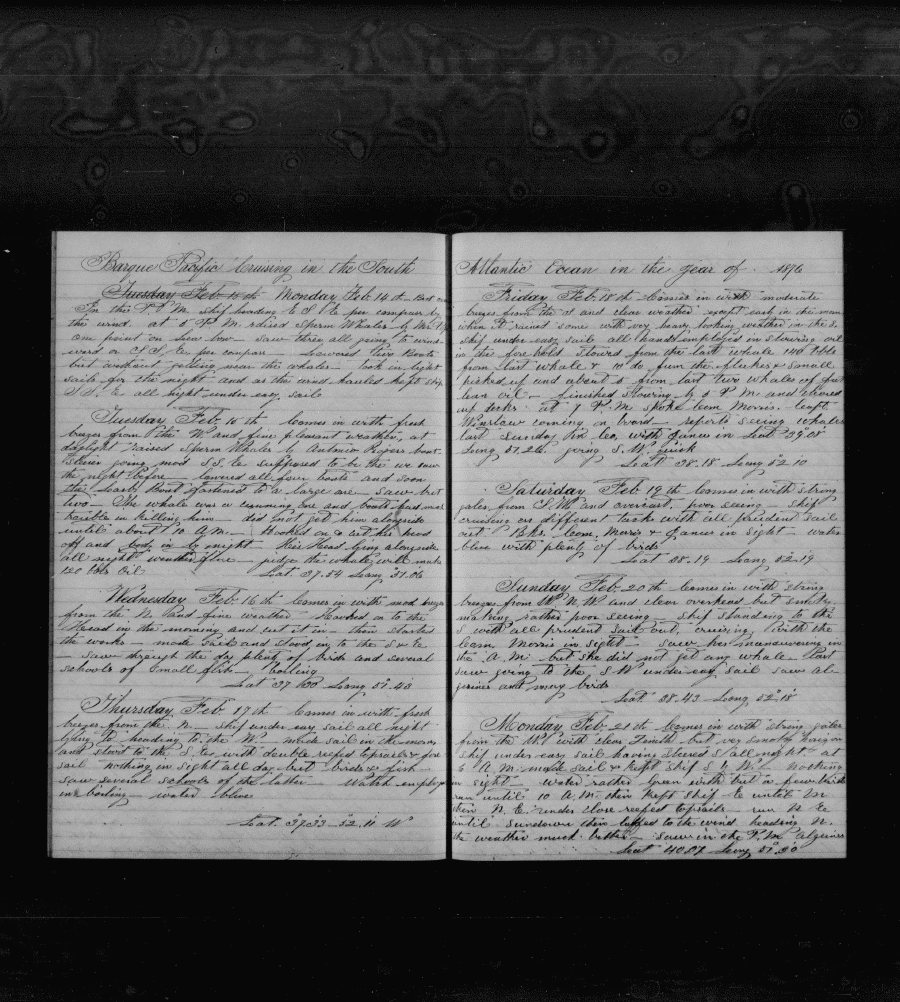 Barque Pacific Cruising in the South
Tuesday Feb 15th Monday Feb. 14th
In this P.M. ship heading E S E per compass by
the wind. at 5 P.M. raised Sperm Whales by Mr.
one point on Lea bow saw three all going to wind-
ward or S S E per compass Lowered two Boats
but without getting near the whales took in light
sails for the night and as the wind hauled kept ship
S S E all night under easy sail
Tuesday Feb 15 th Comes in with fresh
breezes from the W. and fine pleasant weather, at
daylight raised Sperm Whales by Antonio Rogers boat-
steerer going mod S S E supposed to be the we saw
the night before lowered all four boats and soon
the Lear. Boat fastened to a large one saw but
two The whale was a cunning one and boats had
trouble in killing him did not get him alongside
until about 10 A.M. Hooked on & cut his
off and body in by night His Head lying alongside
all night weather fine judge the whale will make
120 bbls Oil Lat 37.54 Long 51.06
Wednesday Feb 16th Comes in with mod breezes
from the N. and fine weather Hooked on to the
Head in the morning and cut it in then started
the works made Sail and stood in to the S & E
saw through the day plenty of birds and several
schools of Small fish boiling
Lat 37 Long 51.43
Thursday Feb 17th Comes in with fresh
breezes from the N. ship under easy sail all night
lying to heading to the W. made sail in the morn
and stood to the S.E. with double reefed topsails & fore
sail nothing in sight all day but birds & fish
saw several schools of the latter Watch employed
in boiling water blue
Lat. 37.33 52.11 W
Atlantic Ocean in the year of 1876
Friday Feb. 18th Comes in with moderate
breezes from the S and clear weather except early in the morn
when it rained some with very heavy looking weather in the S.
ship under easy sail all hands employed in stowing oil
in the fore hold Stowed from the last whale 140 bbls
from last whale & 10 do from the flukes & small
picked up and about 5 from last two whales of
lean oil Finished stowing by 5 P.M. and cleared
up decks at 7 P.M. Spoke Com Morris. Capt
Winslow coming on board reports seeing whales
last Sunday in Co. with James in Lat 39°05
Long 51.26. going S.W. quick
Lat 38.18 Long 52 10
Saturday Feb 19th Comes in with Strong
gales from S.W. and overcast, poor seeing ship
cruising on different tacks with all prudent sail
out Bks. Com. Morris & James in sight water
blue with plenty of birds
Lat 38.19 Long 52.19
Sunday Feb. 20th Comes in with strong
breezes from W N W and clear overhead but smoky
making rather poor seeing Ship standing to the
S with all prudent sail out, cruising with the
Com Morris in sight saw her maneuvering in
the A.M. but she did not get any whale Part
saw going to the S W under easy sail saw al-
gerines and many birds
Lat. 38.43 Long 52°15
Monday Feb 21 th Comes in with strong gales
from the W with clear Finish but very much
ship under easy sail having steered S all night at
6 A.M. made Sail & kept ship S by W. Nothing
in sight water rather green with but a few birds
ran until 10 A.M. then kept ship E until M
then N.E. under close reefed topsails run N E
until sundown then luffed to the wind heading N.
the weather much better saw in the P.M. algerines
Lat 40.27 Long 51°30